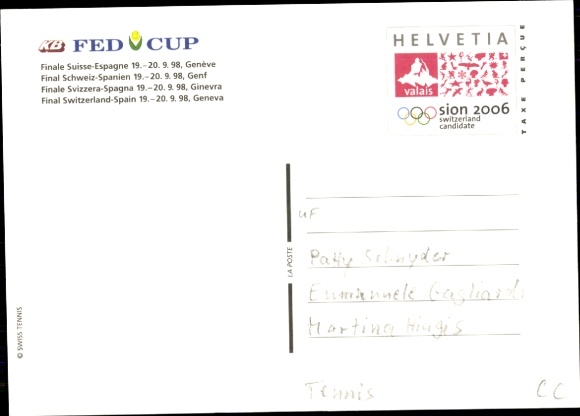 KB FED CUP
Finale Suisse-Espagne 19.–20. 9. 98, Genève
Final Schweiz-Spanien 19.–20. 9. 98, Genf
Finale Svizzera-Spagna 19.–20. 9. 98, Ginevra
Final Switzerland-Spain 19.–20. 9. 98, Geneva
HELVETIA
valais
sion 2006
switzerland
candidate
TAXE PERÇUE
LA POSTE
© SWISS TENNIS
uf
Patty Schnyder
Emmanuele Gagliardi
Martina Hingis
Tennis
CC